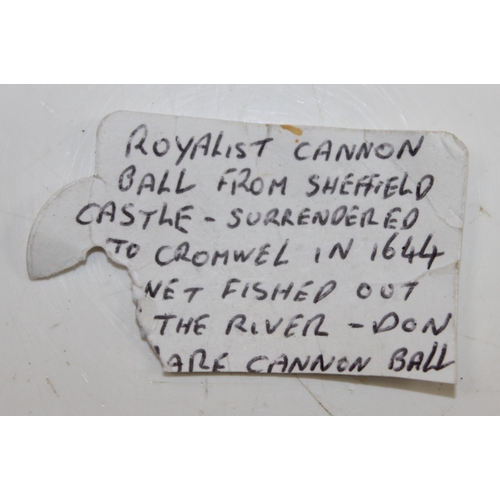 ROYALIST CANNON
BALL FROM SHEFFIELD
CASTLE - SURRENDERED
TO CROMWEL IN 1644
NET FISHED OUT
THE RIVER - DON
ARE CANNON BALL